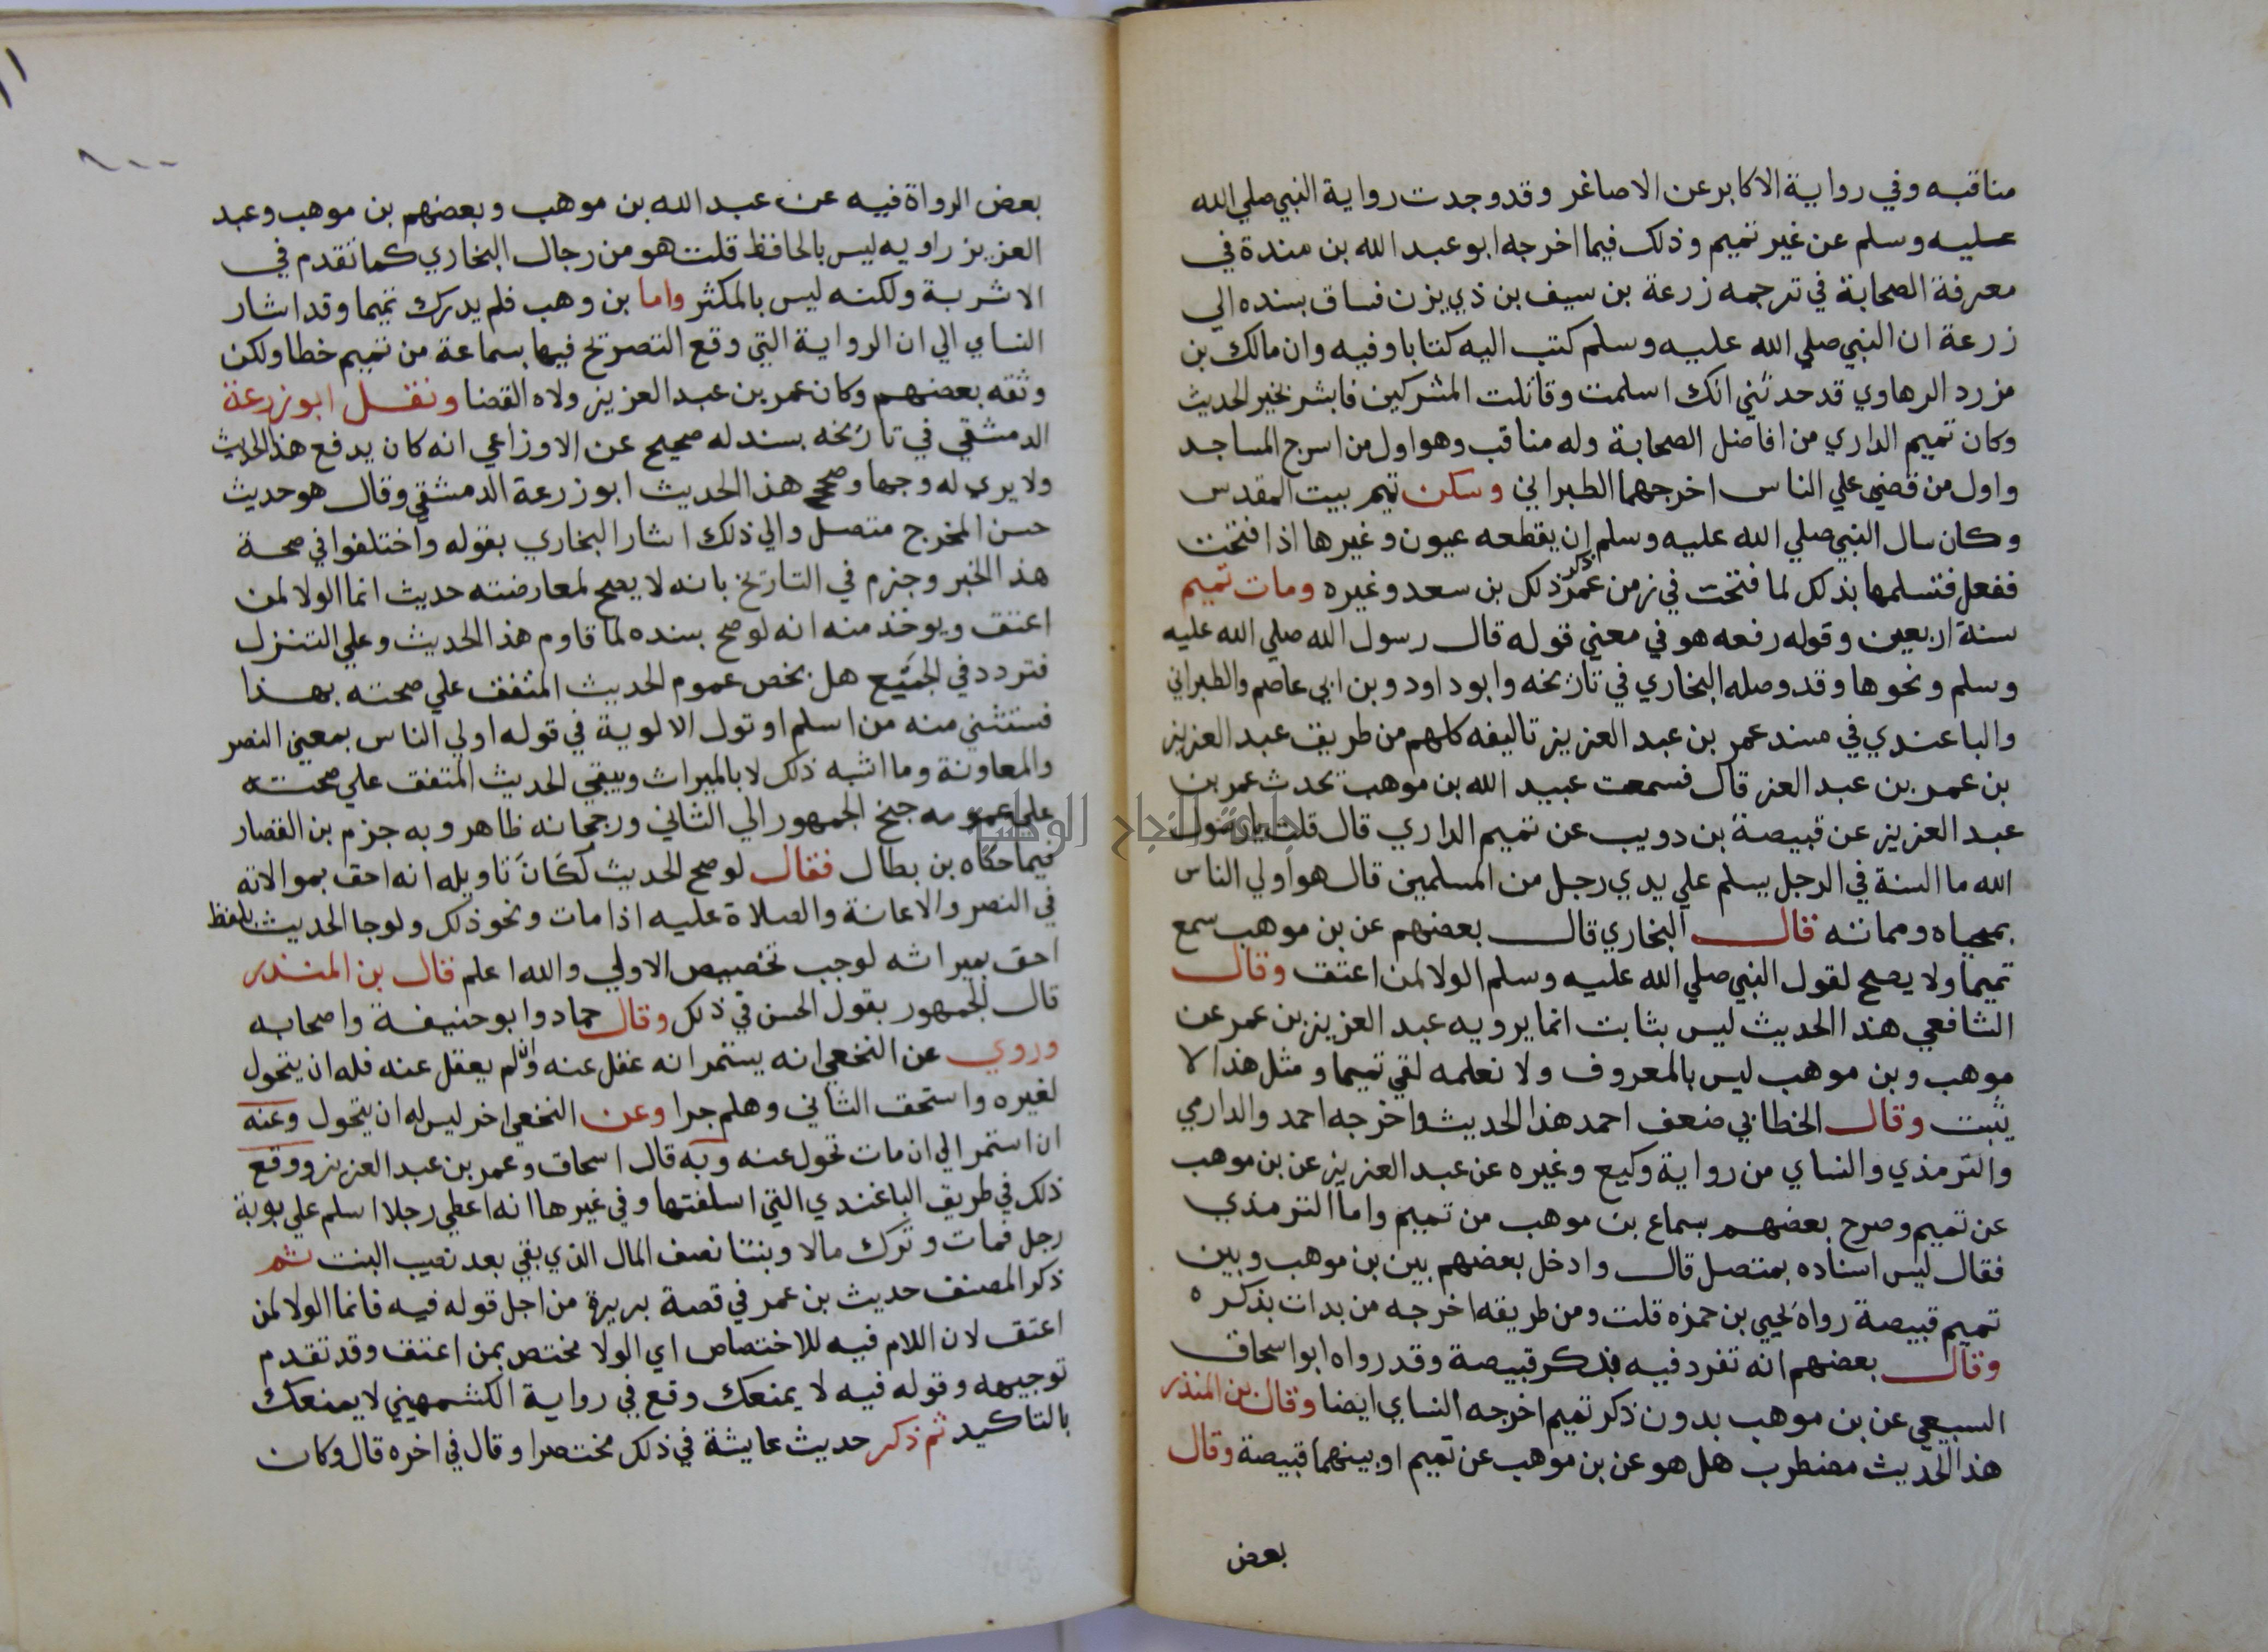 مناقبه وفي رواية الاكابر عن الاصاغر وقد وجدت رواية النبي صلي الله
عليه وسلم عن غير تميم وذلك فيما اخرجه ابو عبد الله بن مندة في
معرفة الصحابة في ترجمه زرعة بن سيف بن ذي يزن فساق بسنده الي
زرعة ان النبي صلي الله عليه وسلم كتب اليه كتابا وفيه وان مالك بن
مزرد الرهاوي قد حدثني انك اسلمت وقاتلت المشركين فابشر بخير الحديث
وكان تميم الداري من افاضل الصحابة وله مناقب وهو اول من اسرج المساجد
واول من قضي علي الناس اخرجهما الطبراني وسكن تميم بيت المقدس
وكان سال النبي صلي الله عليه وسلم ان يقطعه عيون وغيرها اذا فتحت
ففعل فتسلمها بذلك لما فتحت في زمن عمر ذكر ذلك بن سعد وغيره ومات تميم
سنة اربعين وقوله رفعه هو في معني قوله قال رسول الله صلي الله عليه
وسلم ونحوها وقد وصله البخاري في تاريخه وابو داود وبن ابي عاصم والطبراني
والباغندي في مسند عمر بن عبد العزيز تاليفه كلهم من طريق عبد العزيز
بن عمر بن عبد العز قال فسمعت عبيد الله بن موهب يحدث عمر بن
عبد العزيز عن قبيصة بن دويب عن تميم الداري قال قلت يا رسول
الله ما السنة في الرجل يسلم علي يدي رجل من المسلمين قال هو اولي الناس
بمحياه ومماته قال البخاري قال بعضهم عن بن موهب سمع
تميما ولا يصح لقول النبي صلي الله عليه وسلم الولا لمن اعتق وقال
الشافعي هذا الحديث ليس بثابت انما يرويه عبد العزيز بن عمر عن
موهب وبن موهب ليس بالمعروف ولا نعلمه لقي تميما ومثل هذا لا
يثبت وقال الخطابي ضعف احمد هذا الحديث واخرجه احمد والدارمي
والترمذي والنساي من رواية وكيع وغيره عن عبد العزيز عن بن موهب
عن تميم وصرح بعضهم بسماع بن موهب من تميم واما الترمذي
فقال ليس اسناده بمتصل قال وادخل بعضهم بين بن موهب وبين
تميم قبيصة رواه يحيي بن حمزه قلت ومن طريقه اخرجه من بدات بذكره
وقال بعضهم انه تفرد فيه بذكر قبيصة وقد رواه ابو اسحاق
السبيعي عن بن موهب بدون ذكر تميم اخرجه النساي ايضا وقال بن المنذر
هذا الحديث مضطرب هل هو عن بن موهب عن تميم او بينهما قبيصة وقال
بعض
بعض الرواة فيه عن عبد الله بن موهب وبعضهم بن موهب وعبد
العزيز راويه ليس بالحافظ قلت هو من رجال البخاري كما تقدم في
الاشربة ولكنه ليس بالمكثر واما بن وهب فلم يدرك تميما وقد اشار
النساي الي ان الرواية التي وقع التصريح فيها بسماعة من تميم خطا ولكن
وثقه بعضهم وكان عمر بن عبد العزيز ولاه القضا ونقل ابو زرعة
الدمشقي في تاريخه بسند له صحيح عن الاوزاعي انه كان يدفع هذا الحديث
ولا يري له وجها وصحح هذا الحديث ابو زرعة الدمشقي وقال هو حديث
حسن المخرج متصل والي ذلك اشار البخاري بقوله واختلفوا في صحة
هذا الخبر وجزم في التاريخ بانه لا يصح لمعارضته حديث انما الولا لمن
اعتق ويوخذ منه انه لو صح بسنده لما قاوم هذا الحديث وعلي التنزل
فتردد في الجميع هل يخص عموم الحديث المتفق علي صحته بهذا
فستثني منه من اسلم او تول الالوية في قوله اولي الناس بمعني النصر
والمعاونة وما اشبه ذلك لا بالميراث ويبقي الحديث المتفق علي صحته
علي عمومه جنح الجمهور الي الثاني ورجحانه ظاهر وبه جزم بن القصار
فيما حكاه بن بطال فقال لو صح الحديث لكان تاويله انه احق بموالاته
في النصر والاعانة والصلاة عليه اذا مات ونحو ذلك ولو جا الحديث بلفظ
احق بميراثه لوجب تخصيص الاولي والله اعلم قال بن المنذر
قال الجمهور بقول الحسن في ذلك وقال حماد وابو حنيفة واصحابه
وروي عن النخعي انه يستمر انه عقل عنه وان لم يعقل عنه فله ان يتحول
لغيره واستحق الثاني وهلم جرا وعن النخعي اخر ليس له ان يتحول وعنه
ان استمر الي ان مات تحول عنه وبه قال اسحاق وعمر بن عبد العزيز ووقع
ذلك في طريق الباغندي التي اسلفتها وفي غيرها انه اعطي رجلا اسلم علي يوبة
رجل فمات وترك مالا وبنتا نصف المال الذي بقي بعد نصيب البنت ثم
ذكر المصنف حديث بن عمر في قصة بريرة من اجل قوله فيه فانما الولا لمن
اعتق لان اللام فيه للاختصاص اي الولا مختص بمن اعتق وقد تقدم
توجيهه وقوله فيه لا يمنعك وقع في رواية الكشمهيني لا يمنعك
بالتاكيد ثم ذكر حديث عايشة في ذلك مختصرا وقال في اخره قال وكان
جامعة النجاح الوطنية